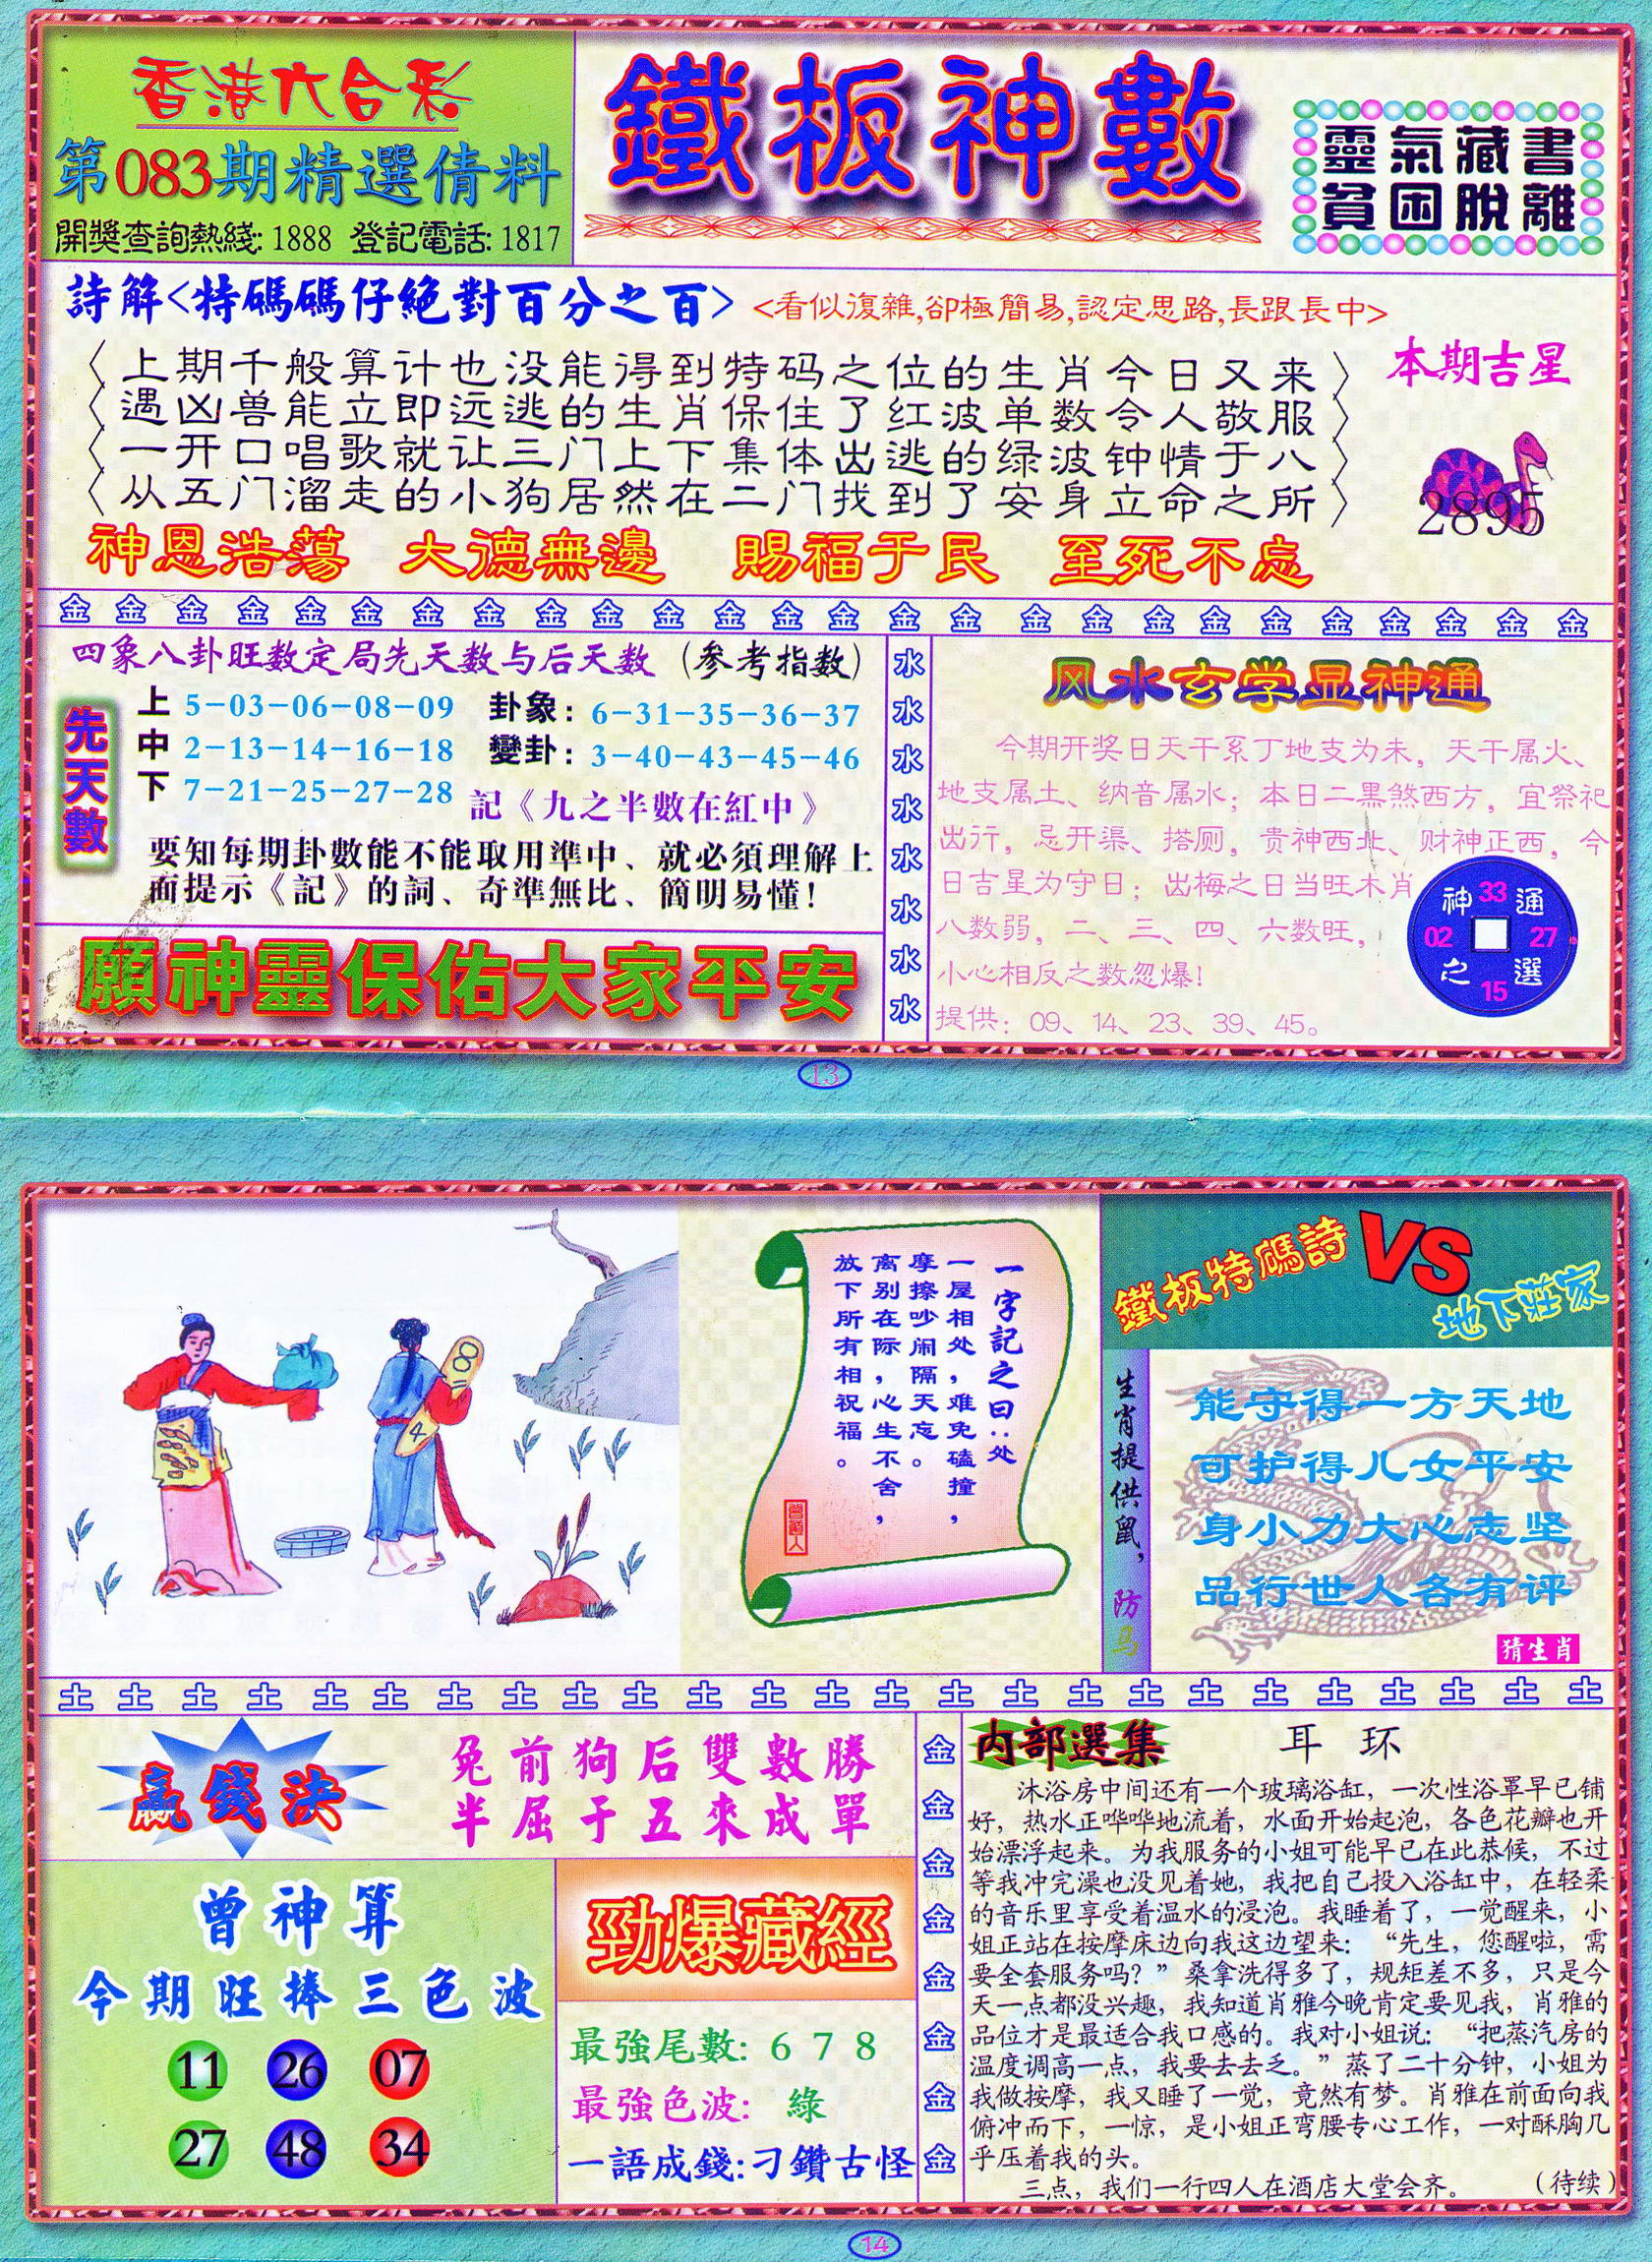 香港六合彩
第083期精選倩料
開獎查詢熱綫: 1888 登記電話: 1817
鐵板神數
靈氣藏書
貧困脫離
詩解<特碼碼仔絕對百分之百> <看似復雜,卻極簡易,認定思路,長跟長中>
〈上期千般算计也没能得到特码之位的生肖今日又来〉
〈遇凶兽能立即远逃的生肖保住了红波单数令人敬服〉
〈一开口唱歌就让三门上下集体出逃的绿波钟情于八〉
〈从五门溜走的小狗居然在二门找到了安身立命之所〉
本期吉星
2895
神恩浩蕩 大德無邊 賜福于民 至死不忘
金 金 金 金 金 金 金 金 金 金 金 金 金 金 金 金 金 金 金 金 金 金 金 金 金
四象八卦旺数定局先天数与后天数 (参考指数)
先天數
上 5-03-06-08-09 卦象: 6-31-35-36-37
中 2-13-14-16-18 變卦: 3-40-43-45-46
下 7-21-25-27-28 記《九之半數在紅中》
要知每期卦數能不能取用準中、就必須理解上
面提示《記》的詞、奇準無比、簡明易懂!
願神靈保佑大家平安
水
水
水
水
水
水
水
水
风水玄学显神通
今期开奖日天干系丁地支为未，天干属火、
地支属土、纳音属水；本日二黑煞西方，宜祭祀
出行，忌开渠、搭厕，贵神西北、财神正西，今
日吉星为守日；出梅之日当旺木肖
八数弱，二、三、四、六数旺，
小心相反之数忽爆!
提供：09、14、23、39、45。
神 33 通
02 27
之 15 選
13
100
4
一字記之曰:处
一屋相处，难免磕撞，
摩擦吵闹隔天忘。
离别在际，心生不舍，
放下所有相祝福。
曾道人
鐵板特碼詩 VS 地下莊家
生肖提供鼠，防馬
能守得一方天地
可护得儿女平安
身小力大心志坚
品行世人各有评
猜生肖
土 土 土 土 土 土 土 土 土 土 土 土 土 土 土 土 土 土 土 土 土 土 土 土 土
贏錢決
兔前狗后雙數勝
半屈于五來成單
曾神算
今期旺捧三色波
11 26 07
27 48 34
勁爆藏經
最強尾數: 6 7 8
最強色波: 綠
一語成錢:刁鑽古怪
金
金
金
金
金
金
金
金
内部選集 耳环
沐浴房中间还有一个玻璃浴缸，一次性浴罩早已铺
好，热水正哗哗地流着，水面开始起泡，各色花瓣也开
始漂浮起来。为我服务的小姐可能早已在此恭候，不过
等我冲完澡也没见着她，我把自己投入浴缸中，在轻柔
的音乐里享受着温水的浸泡。我睡着了，一觉醒来，小
姐正站在按摩床边向我这边望来：“先生，您醒啦，需
要全套服务吗？”桑拿洗得多了，规矩差不多，只是今
天一点都没兴趣，我知道肖雅今晚肯定要见我，肖雅的
品位才是最适合我口感的。我对小姐说：“把蒸汽房的
温度调高一点，我要去去乏。”蒸了二十分钟，小姐为
我做按摩，我又睡了一觉，竟然有梦。肖雅在前面向我
俯冲而下，一惊，是小姐正弯腰专心工作，一对酥胸几
乎压着我的头。
三点，我们一行四人在酒店大堂会齐。 (待续)
14